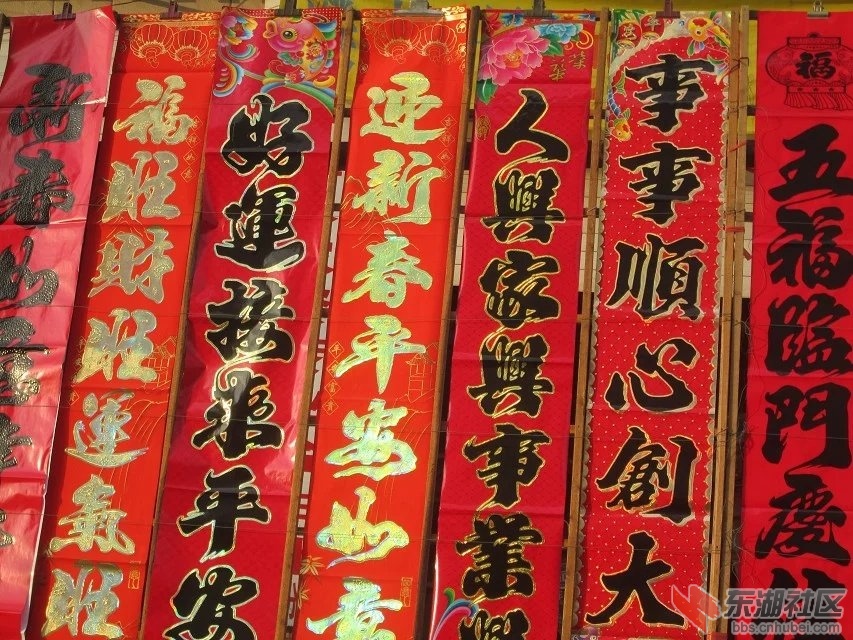 新春如意
福旺財旺運氣旺
好運接來平安
迎新春平安如意
人興家興事業興
事事順心創大
福
五福臨門慶
东湖社区
bbs.cnhubei.com